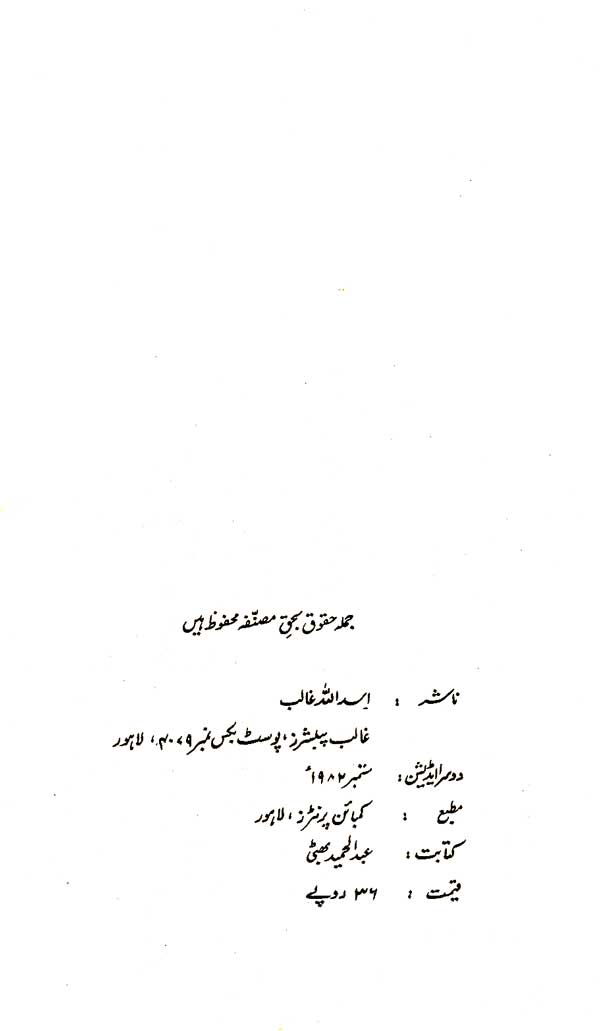 جملہ حقوق بحق مصنّفہ محفوظ ہیں
ناشر : اسد اللہ غالب
غالب پبلشرز، پوسٹ بکس نمبر ۴۰۷۹، لاہور
دوسرا ایڈیشن : ستمبر ۱۹۸۲ء
مطبع : کمبائن پرنٹرز، لاہور
کتابت : عبدالحمید بھٹی
قیمت : ۳۶ روپے